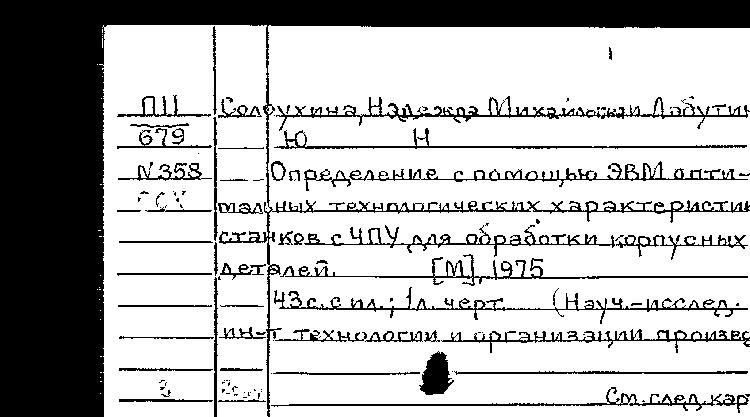 ПII Солоухина, Надежда Михайловна и Лабутин
679 Ю Н
N358 Определение с помощью ЭВМ опти-
мальных технологических характеристик
станков с ЧПУ для обработки корпусных
деталей. [М], 1975
43 с. с ил.; 1 л. черт. (Науч.-исслед.
ин-т технологии и организации произв
См. след. кар